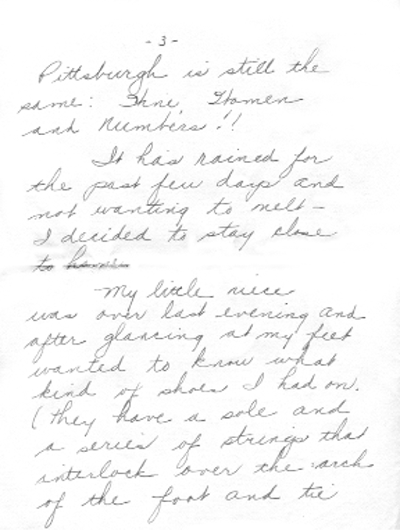 - 3 -
Pittsburgh is still the
same: Wine, Women
and Numbers!!
It has rained for
the past few days and
not wanting to melt -
I decided to stay close
to home.
My little niece
was over last evening and
after glancing at my feet
wanted to know what
kind of shoes I had on.
(They have a sole and
a series of strings that
interlock over the arch
of the foot and tie